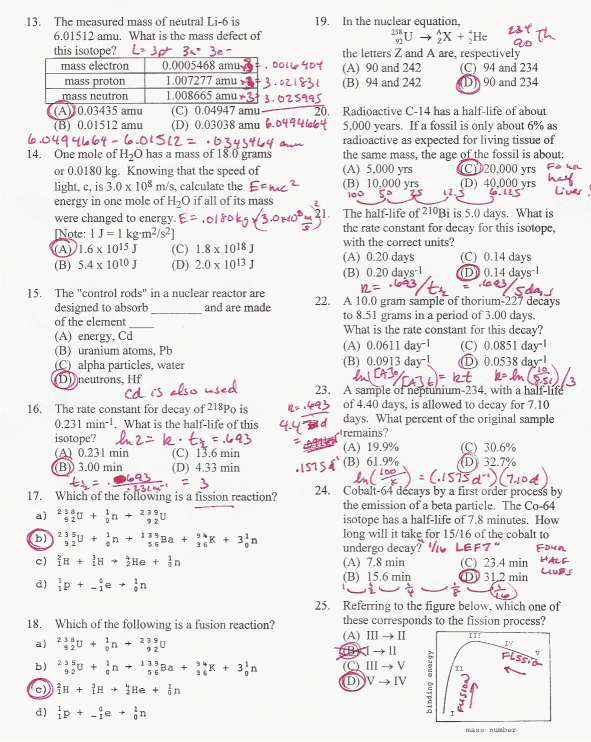 13. The measured mass of neutral Li-6 is
6.01512 amu. What is the mass defect of
this isotope? L= 3p+ 3n° 3e-
mass electron 0.0005468 amu ×3 = .0016404
mass proton 1.007277 amu ×3 = 3.021831
mass neutron 1.008665 amu ×3 = 3.025995
(A) 0.03435 amu (C) 0.04947 amu
(B) 0.01512 amu (D) 0.03038 amu 6.0494664
6.0494664 - 6.01512 = .0343464 amu
14. One mole of H₂O has a mass of 18.0 grams
or 0.0180 kg. Knowing that the speed of
light, c, is 3.0 x 10⁸ m/s, calculate the E=mc²
energy in one mole of H₂O if all of its mass
were changed to energy. E = .0180kg × (3.0×10⁸ m/s)²
[Note: 1 J = 1 kg·m²/s²]
(A) 1.6 x 10¹⁵ J (C) 1.8 x 10¹⁸ J
(B) 5.4 x 10¹⁰ J (D) 2.0 x 10¹³ J
15. The "control rods" in a nuclear reactor are
designed to absorb ________ and are made
of the element ____
(A) energy, Cd
(B) uranium atoms, Pb
(C) alpha particles, water
(D) neutrons, Hf
Cd is also used
16. The rate constant for decay of ²¹⁸Po is
0.231 min⁻¹. What is the half-life of this
isotope? ln 2 = k · t½ = .693
(A) 0.231 min (C) 13.6 min
(B) 3.00 min (D) 4.33 min
t½ = .693 / .231 min⁻¹ = 3
17. Which of the following is a fission reaction?
a) ²³⁸₉₂U + ¹₀n → ²³⁹₉₂U
b) ²³⁵₉₂U + ¹₀n → ¹³⁹₅₆Ba + ⁹⁴₃₆K + 3¹₀n
c) ²₁H + ³₁H → ⁴₂He + ¹₀n
d) ¹₁p + ⁰₋₁e → ¹₀n
18. Which of the following is a fusion reaction?
a) ²³⁸₉₂U + ¹₀n → ²³⁹₉₂U
b) ²³⁵₉₂U + ¹₀n → ¹³⁹₅₆Ba + ⁹⁴₃₆K + 3¹₀n
c) ²₁H + ³₁H → ⁴₂He + ¹₀n
d) ¹₁p + ⁰₋₁e → ¹₀n
19. In the nuclear equation,
²³⁸₉₂U → ᴬ_Z X + ⁴₂He 234 90 Th
the letters Z and A are, respectively
(A) 90 and 242 (C) 94 and 234
(B) 94 and 242 (D) 90 and 234
20. Radioactive C-14 has a half-life of about
5,000 yrs. If a fossil is only about 6% as
radioactive as expected for living tissue of
the same mass, the age of the fossil is about:
(A) 5,000 yrs (C) 20,000 yrs Four
(B) 10,000 yrs (D) 40,000 yrs half
100 50 25 12.5 6.125 Lives!
21. The half-life of ²¹⁰Bi is 5.0 days. What is
the rate constant for decay for this isotope,
with the correct units?
(A) 0.20 days (C) 0.14 days
(B) 0.20 days⁻¹ (D) 0.14 days⁻¹
k = .693/t½ = .693/5 days
22. A 10.0 gram sample of thorium-227 decays
to 8.51 grams in a period of 3.00 days.
What is the rate constant for this decay?
(A) 0.0611 day⁻¹ (C) 0.0851 day⁻¹
(B) 0.0913 day⁻¹ (D) 0.0538 day⁻¹
ln([A]₀/[A]t) = kt k = ln(10/8.51)/3
23. A sample of neptunium-234, with a half-life
k = .693 of 4.40 days, is allowed to decay for 7.10
4.4 d days. What percent of the original sample
remains?
(A) 19.9% (C) 30.6%
.1575 d⁻¹ (B) 61.9% (D) 32.7%
ln(100/x) = (.1575 d⁻¹)(7.10d)
24. Cobalt-64 decays by a first order process by
the emission of a beta particle. The Co-64
isotope has a half-life of 7.8 minutes. How
long will it take for 15/16 of the cobalt to
undergo decay? "1/16 LEFT" FOUR
(A) 7.8 min (C) 23.4 min HALF
(B) 15.6 min (D) 31.2 min LIVES
1 ½ ¼ ⅛ 1/16
25. Referring to the figure below, which one of
these corresponds to the fission process?
(A) III → II
(B) I → II
(C) III → V
(D) V → IV
binding energy
I II III IV V
FUSION
FISSION
mass number